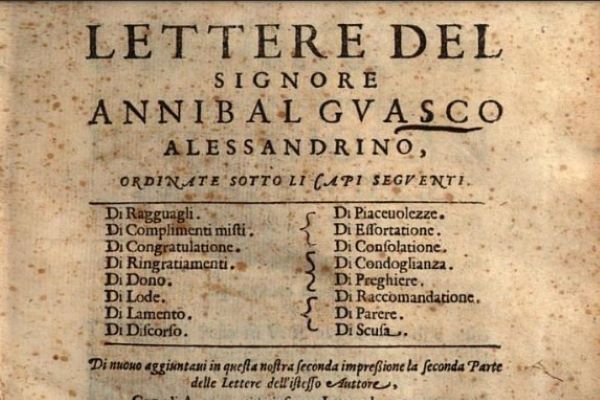 LETTERE DEL
SIGNORE
ANNIBAL GVASCO
ALESSANDRINO,
ORDINATE SOTTO LI CAPI SEGVENTI.
Di Ragguagli.
Di Complimenti misti.
Di Congratulatione.
Di Ringratiamenti.
Di Dono.
Di Lode.
Di Lamento.
Di Discorso.
Di Piaceuolezze.
Di Essortatione.
Di Consolatione.
Di Condoglianza.
Di Preghiere.
Di Raccomandatione.
Di Parere.
Di Scusa.
Di nuouo aggiuntaui in questa nostra seconda impreßione la seconda Parte
delle Lettere dell'istesso Auttore,